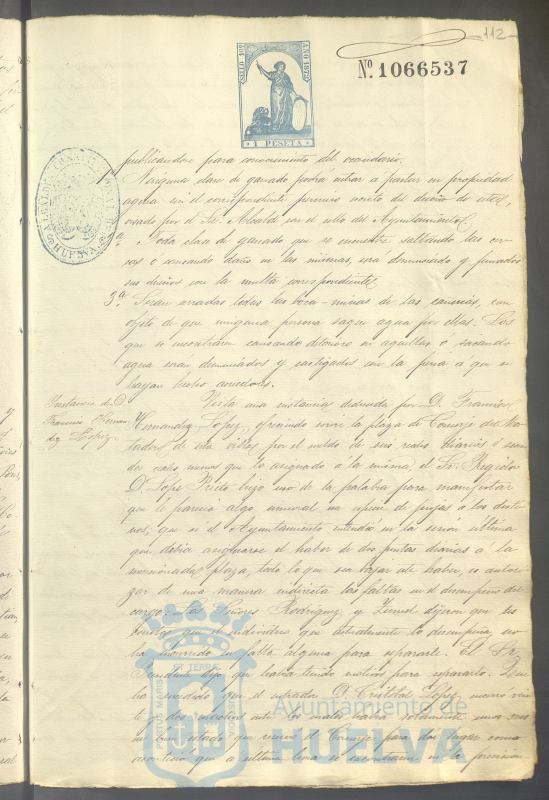 112
Nº 1066537
SELLO 11º AÑO 1879
1 PESETA
publicándose para conocimiento del vecindario.
Ninguna clase de ganado podrá entrar a pastar en propiedad
agena sin el correspondiente permiso escrito del dueño de
visado por el Sr. Alcalde con el sello del Ayuntamiento
2ª Toda clase de ganado que se encuentre saltando las
o causando daño en las mismas, será denunciado y penados
sus dueños con la multa correspondiente
3ª Serán cerradas todas las boca-minas de las cañerías, con
objeto de que ninguna persona saque agua por ellas. Los
que se encontrasen causando deterioro en aquellas o sacando
agua serán denunciados y castigados con la pena á que se
hayan hecho acreedores.
Instancia de D.
Francisco Hernan
dez Lopez.
Vista una instancia deducida por D. Francisco
Hernandez Lopez, ofreciendo servir la plaza de Conserje del
de esta villa, por el sueldo de seis reales diarios ó sean
dos reales menos que lo asignado á la misma, el Sr. Regidor
D. Lope Prieto hizo uso de la palabra para manifestar
que le parecia algo inmoral una especie de pujas á los desti
nos, que si el Ayuntamiento entendió en la sesion ultima
que debia asignarse el haber de dos pesetas diarias á la
mencionada plaza, todo lo que sea bajar este haber, es autori
zar de una manera indirecta las faltas en el desempeño del
cargo. Los Señores Rodriguez y dijeron que
que el individuo que actualmente la desempeña, no
ha incurrido en falta alguna para separarle. El Sr.
dijo que habia tenido motivos para separarlo.
ha sucedido que el D. Cristobal Lopez,
que á ultima hora se encontraron en la precision
PORTUS MARIS ET TERRAE CUSTODIA
Ayuntamiento de
HUELVA